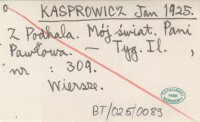 KASPROWICZ Jan 1925.
Z Podhala. Mój świat. Pani
Pawłowa. — Tyg. Il.,
nr : 309.
Wiersze.
BT/025/0089